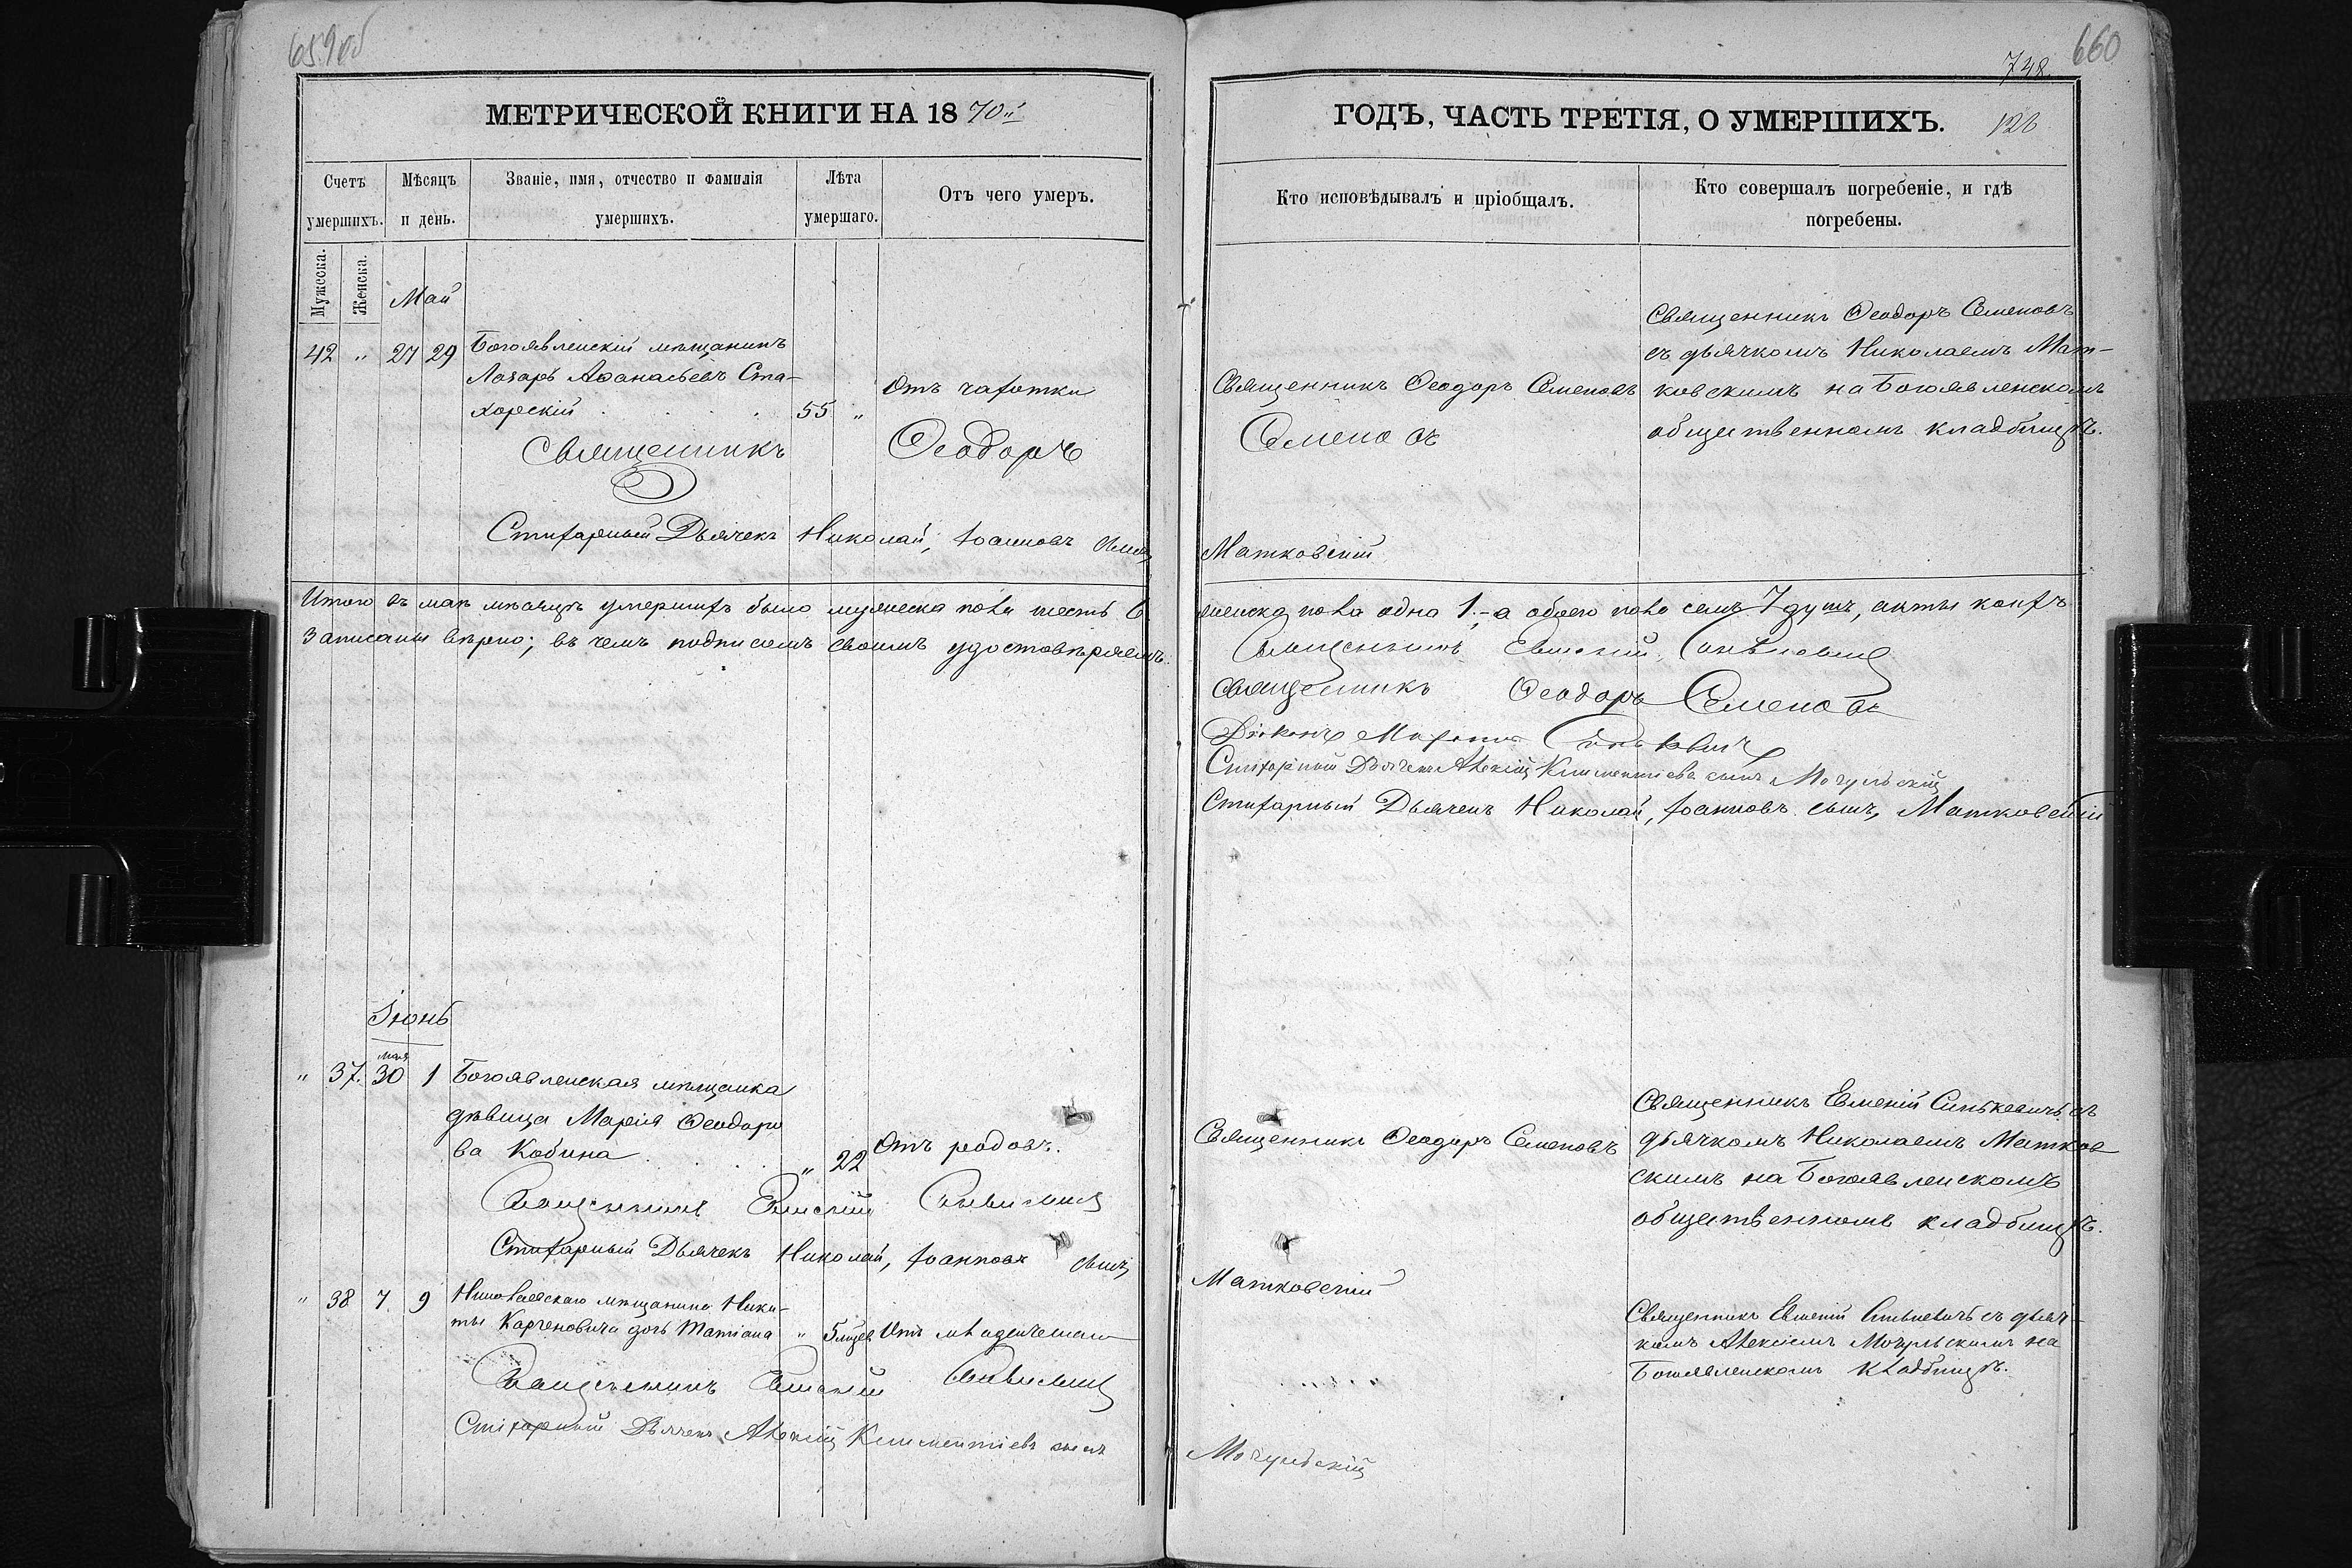 659об
МЕТРИЧЕСКОЙ КНИГИ НА 18 70й
Счетъ умершихъ.
Мужеска.
Женска.
Мѣсяцъ и день.
Званіе, имя, отчество и фамилія умершихъ.
Лѣта умершаго.
Отъ чего умеръ.
Май
42 " 27 29 Богоявленскій мѣщанинъ
Лазарь Аѳанасьевъ Ста-
хорскій 55 " Отъ чахотки
Священникъ Ѳеодоръ
Стихарный Дьячекъ Николай, Іоанновъ сынъ,
Итого въ маѣ мѣсяцѣ умершихъ было мужеска пола шесть 6.
Записаны вѣрно; въ чемъ подписомъ своимъ удостовѣряемъ.
Іюнь
" 37. мая 30 1 Богоявленская мѣщанка
дѣвица Марія Ѳеодоро
ва Кобина " 22 Отъ родовъ.
Священникъ Евмений Синькевичъ
Стихарный Дьячекъ Николай, Іоанновъ сынъ,
" 38 7. 9 мѣщанина Ники-
ты дочь Татіана " 5 мцев Отъ младенческаго
Священникъ Евмений Синькевичъ
Стихарный Дьячекъ Алексій Климентіевъ сынъ
660
748.
ГОДЪ, ЧАСТЬ ТРЕТІЯ, О УМЕРШИХЪ. 126
Кто исповѣдывалъ и пріобщалъ.
Кто совершалъ погребеніе, и гдѣ погребены.
Священникъ Ѳеодоръ Семеновъ
съ дьячкомъ Николаемъ Мат-
Священникъ Ѳеодоръ Семеновъ ковскимъ на Богоявленскомъ
Семеновъ общественномъ кладбищѣ.
Матковскій
женска пола одна 1,- а обоего пола семь 7 душъ, акты коихъ
Священникъ Евмений Синькевичъ
Священникъ Ѳеодоръ Семеновъ
Діаконъ Синькевичъ
Стихарный Дьячекъ Алексій Климентіевъ сынъ Могульскій
Стихарный Дьячекъ Николай, Іоанновъ сынъ, Матковскій
Священникъ Евмений Синькевичъ съ
Священникъ Ѳеодоръ Семеновъ дьячкомъ Николаемъ Матков
скимъ на Богоявленскомъ
общественномъ кладбищѣ.
Матковскій
Священникъ Евмений Синькевичъ съ дьяч-
комъ Алексіемъ Могульскимъ на
Богоявленскомъ кладбищѣ.
Могульскій